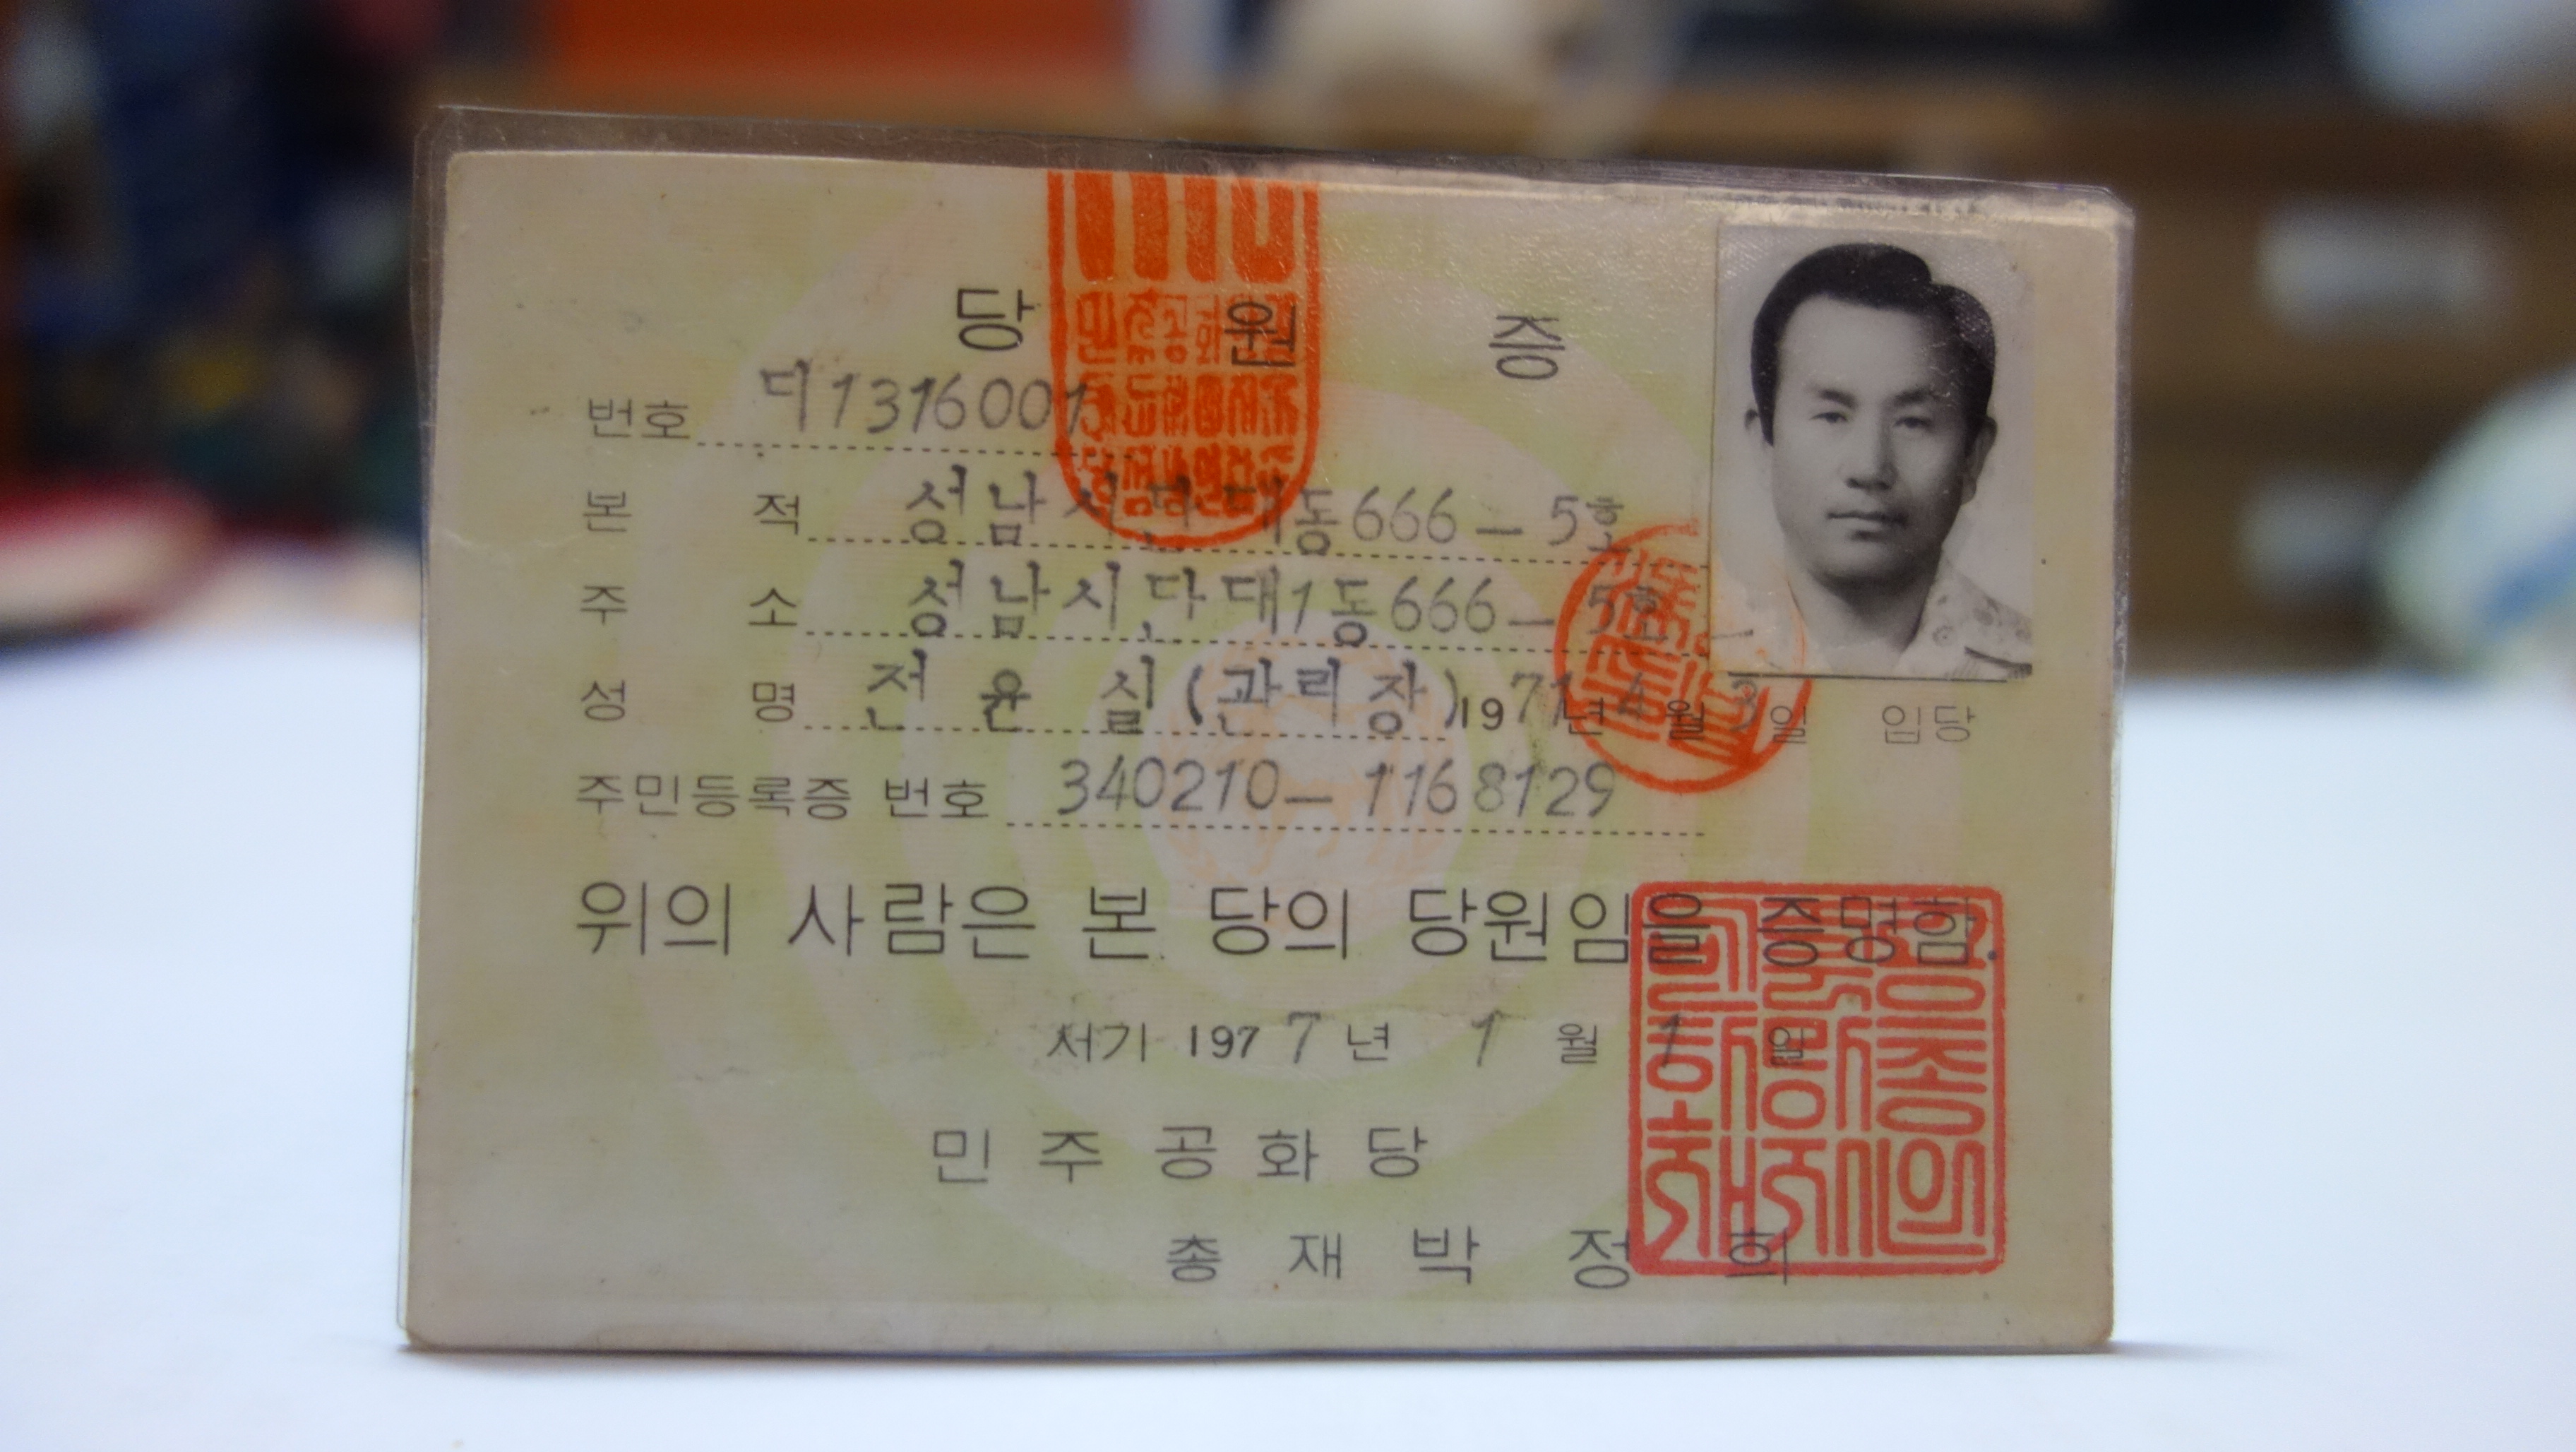 당 원 증
번호 더1316001
본 적 성남시단대동666-5호
주 소 성남시단대1동666-5호
성 명 전윤실(관리장) 1971년 4월 3일 입당
주민등록증 번호 340210-1168129
위의 사람은 본 당의 당원임을 증명함.
서기 1977년 1월 1일
민주공화당
총재 박정희